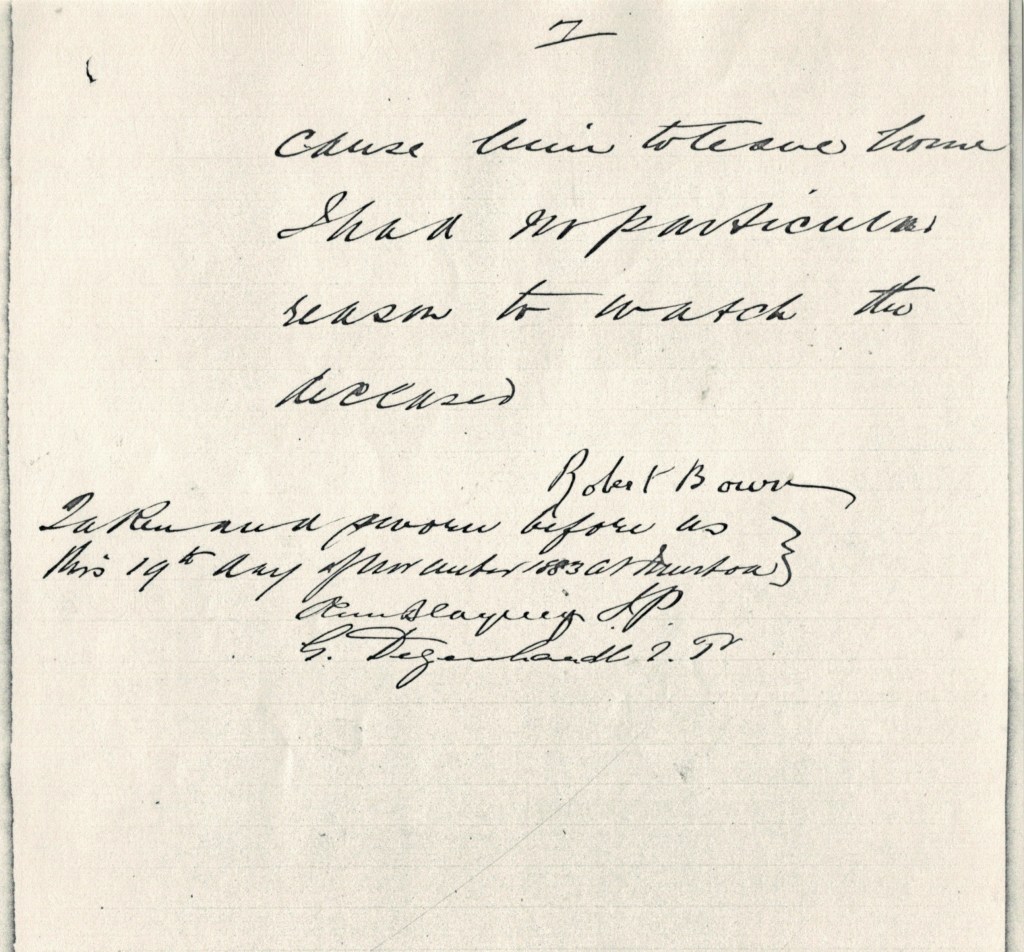 7
cause him to leave home
I had no particular
reason to watch the
deceased
Robert Bown
Taken and sworn before us
this 19th day of November 1883 at
JP.
G. Degenhardt J. P